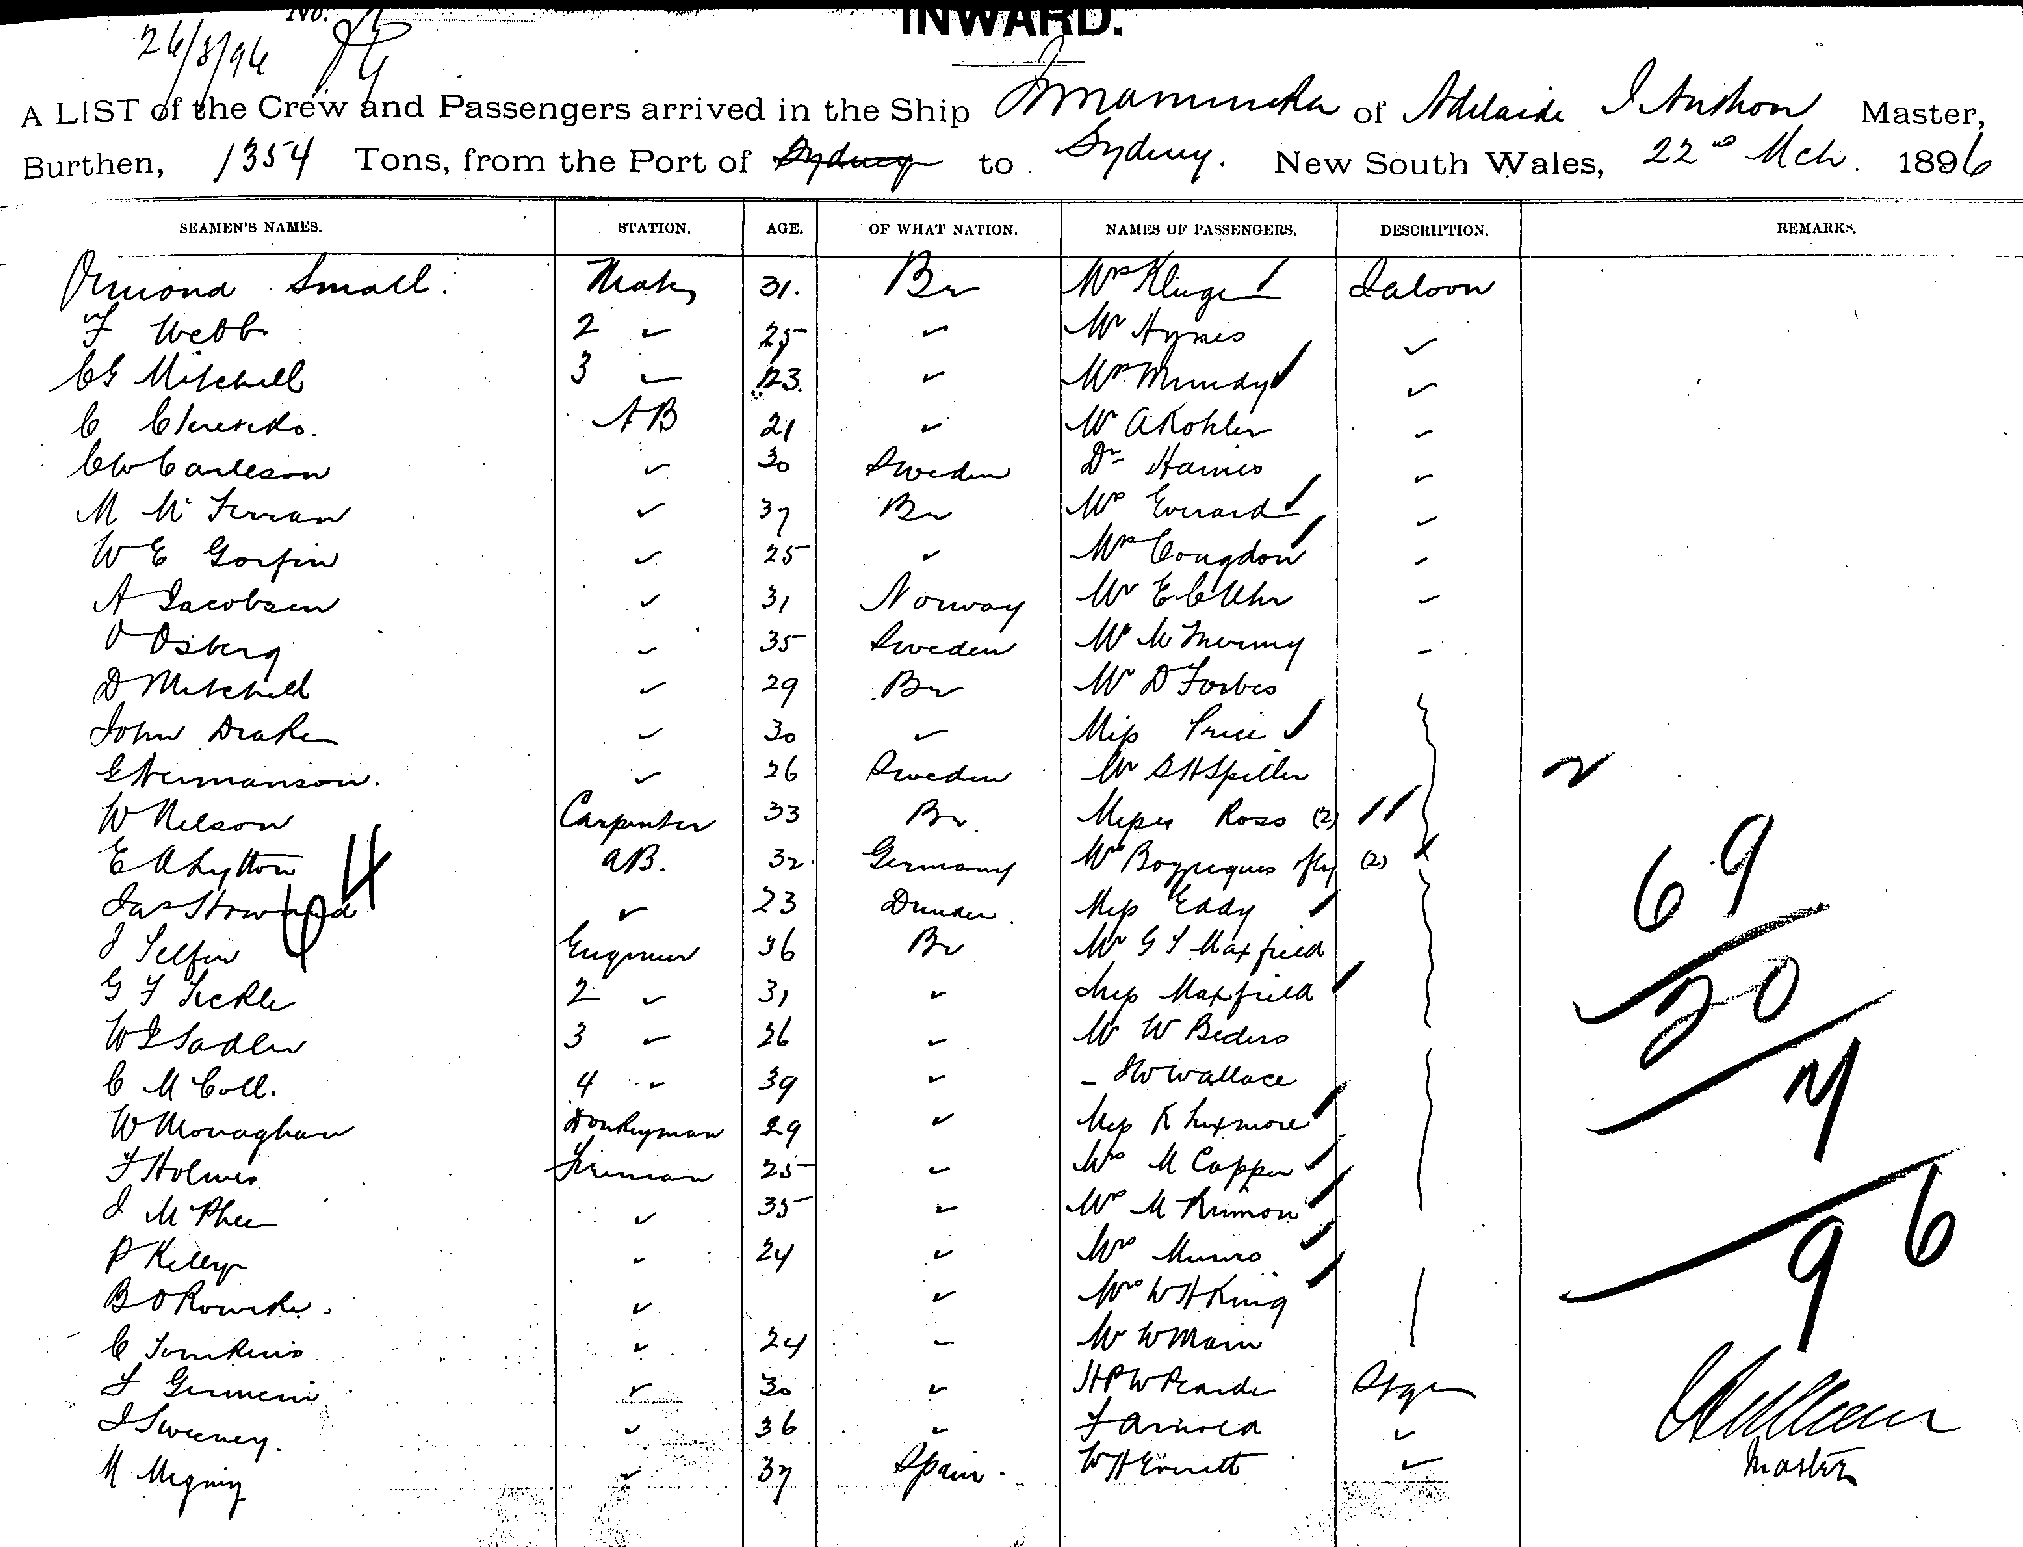 No.
INWARD.
26/3/96
A LIST of the Crew and Passengers arrived in the Ship Innamincka of Adelaide Master,
Burthen, 1354 Tons, from the Port of Sydney to Sydney. New South Wales, 22nd Mch. 1896
SEAMEN'S NAMES. STATION. AGE. OF WHAT NATION. NAMES OF PASSENGERS. DESCRIPTION. REMARKS.
Ormond Small. Mate 31. Br Mrs Kluge Saloon
F Webb 2 ✓ 25 ✓ Mr Hynes ✓
CG Mitchell 3 ✓ 23. ✓ Mrs Mundy ✓
C AB 21 ✓ Mr A Kohler ✓
CW Carlson ✓ 30 Sweden Dr Haines ✓
M McFerran ✓ 37 Br Mrs Everard ✓
W E Gorfin ✓ 25 ✓ Mrs Congdon ✓
A Jacobsen ✓ 31 Norway Mr E C Uhr ✓
O Osberg ✓ 35 Sweden Mr
D Mitchell ✓ 29 Br Mr D Forbes
John Draken ✓ 30 ✓ Miss Price
G Hermanson. ✓ 26 Sweden Mr S H Spiller
W Nelson Carpenter 33 Br. Misses Ross (2)
E A Lytton AB. 32 Germany Mr (2)
Jas 23 Dundee. Miss Eddy
J Telfer Engineer 36 Br Mr G F Maxfield
G F Tickle 2 ✓ 31 ✓ Miss Maxfield
W J Sadler 3 ✓ 26 ✓ Mr W
C McColl. 4 ✓ 39 ✓ – Wallace
W Monaghan Donkeyman 29 ✓ Miss K Luxmore
F Holmes Fireman 25 ✓ Mrs M
J McPhee ✓ 35 ✓ Mrs
P Kelly ✓ 24 ✓ Mrs Munro
B O Rourke. ✓ ✓ Mrs W H King
C Tomkins ✓ 24 – Mr W Main
F Germein ✓ 30 ✓ H P W
J Sweeney. ✓ 36 ✓ F Arnold ✓
M ✓ 37 Spain. W H Everett ✓
64
69
20
7
96
Master